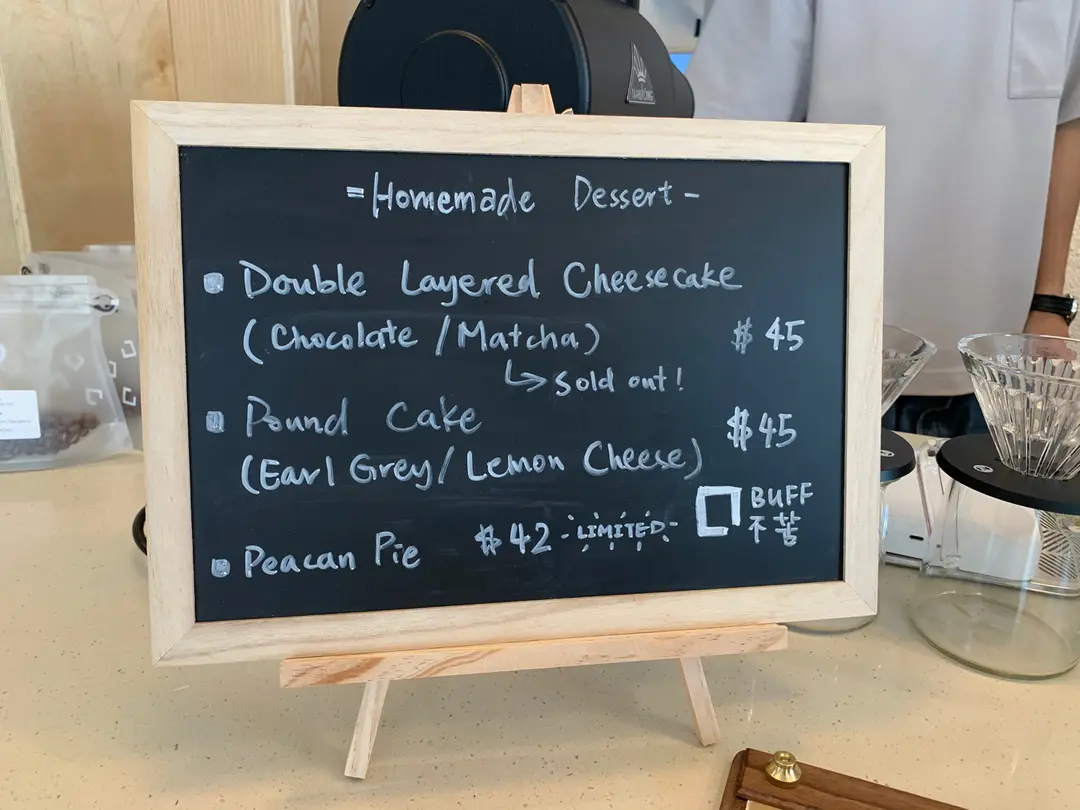 = Homemade Dessert -
Double Layered Cheesecake
(Chocolate / Matcha) $ 45
↳ Sold out!
Pound Cake $45
(Earl Grey / Lemon Cheese)
Peacan Pie $42 - LIMITED -
BUFF
不苦